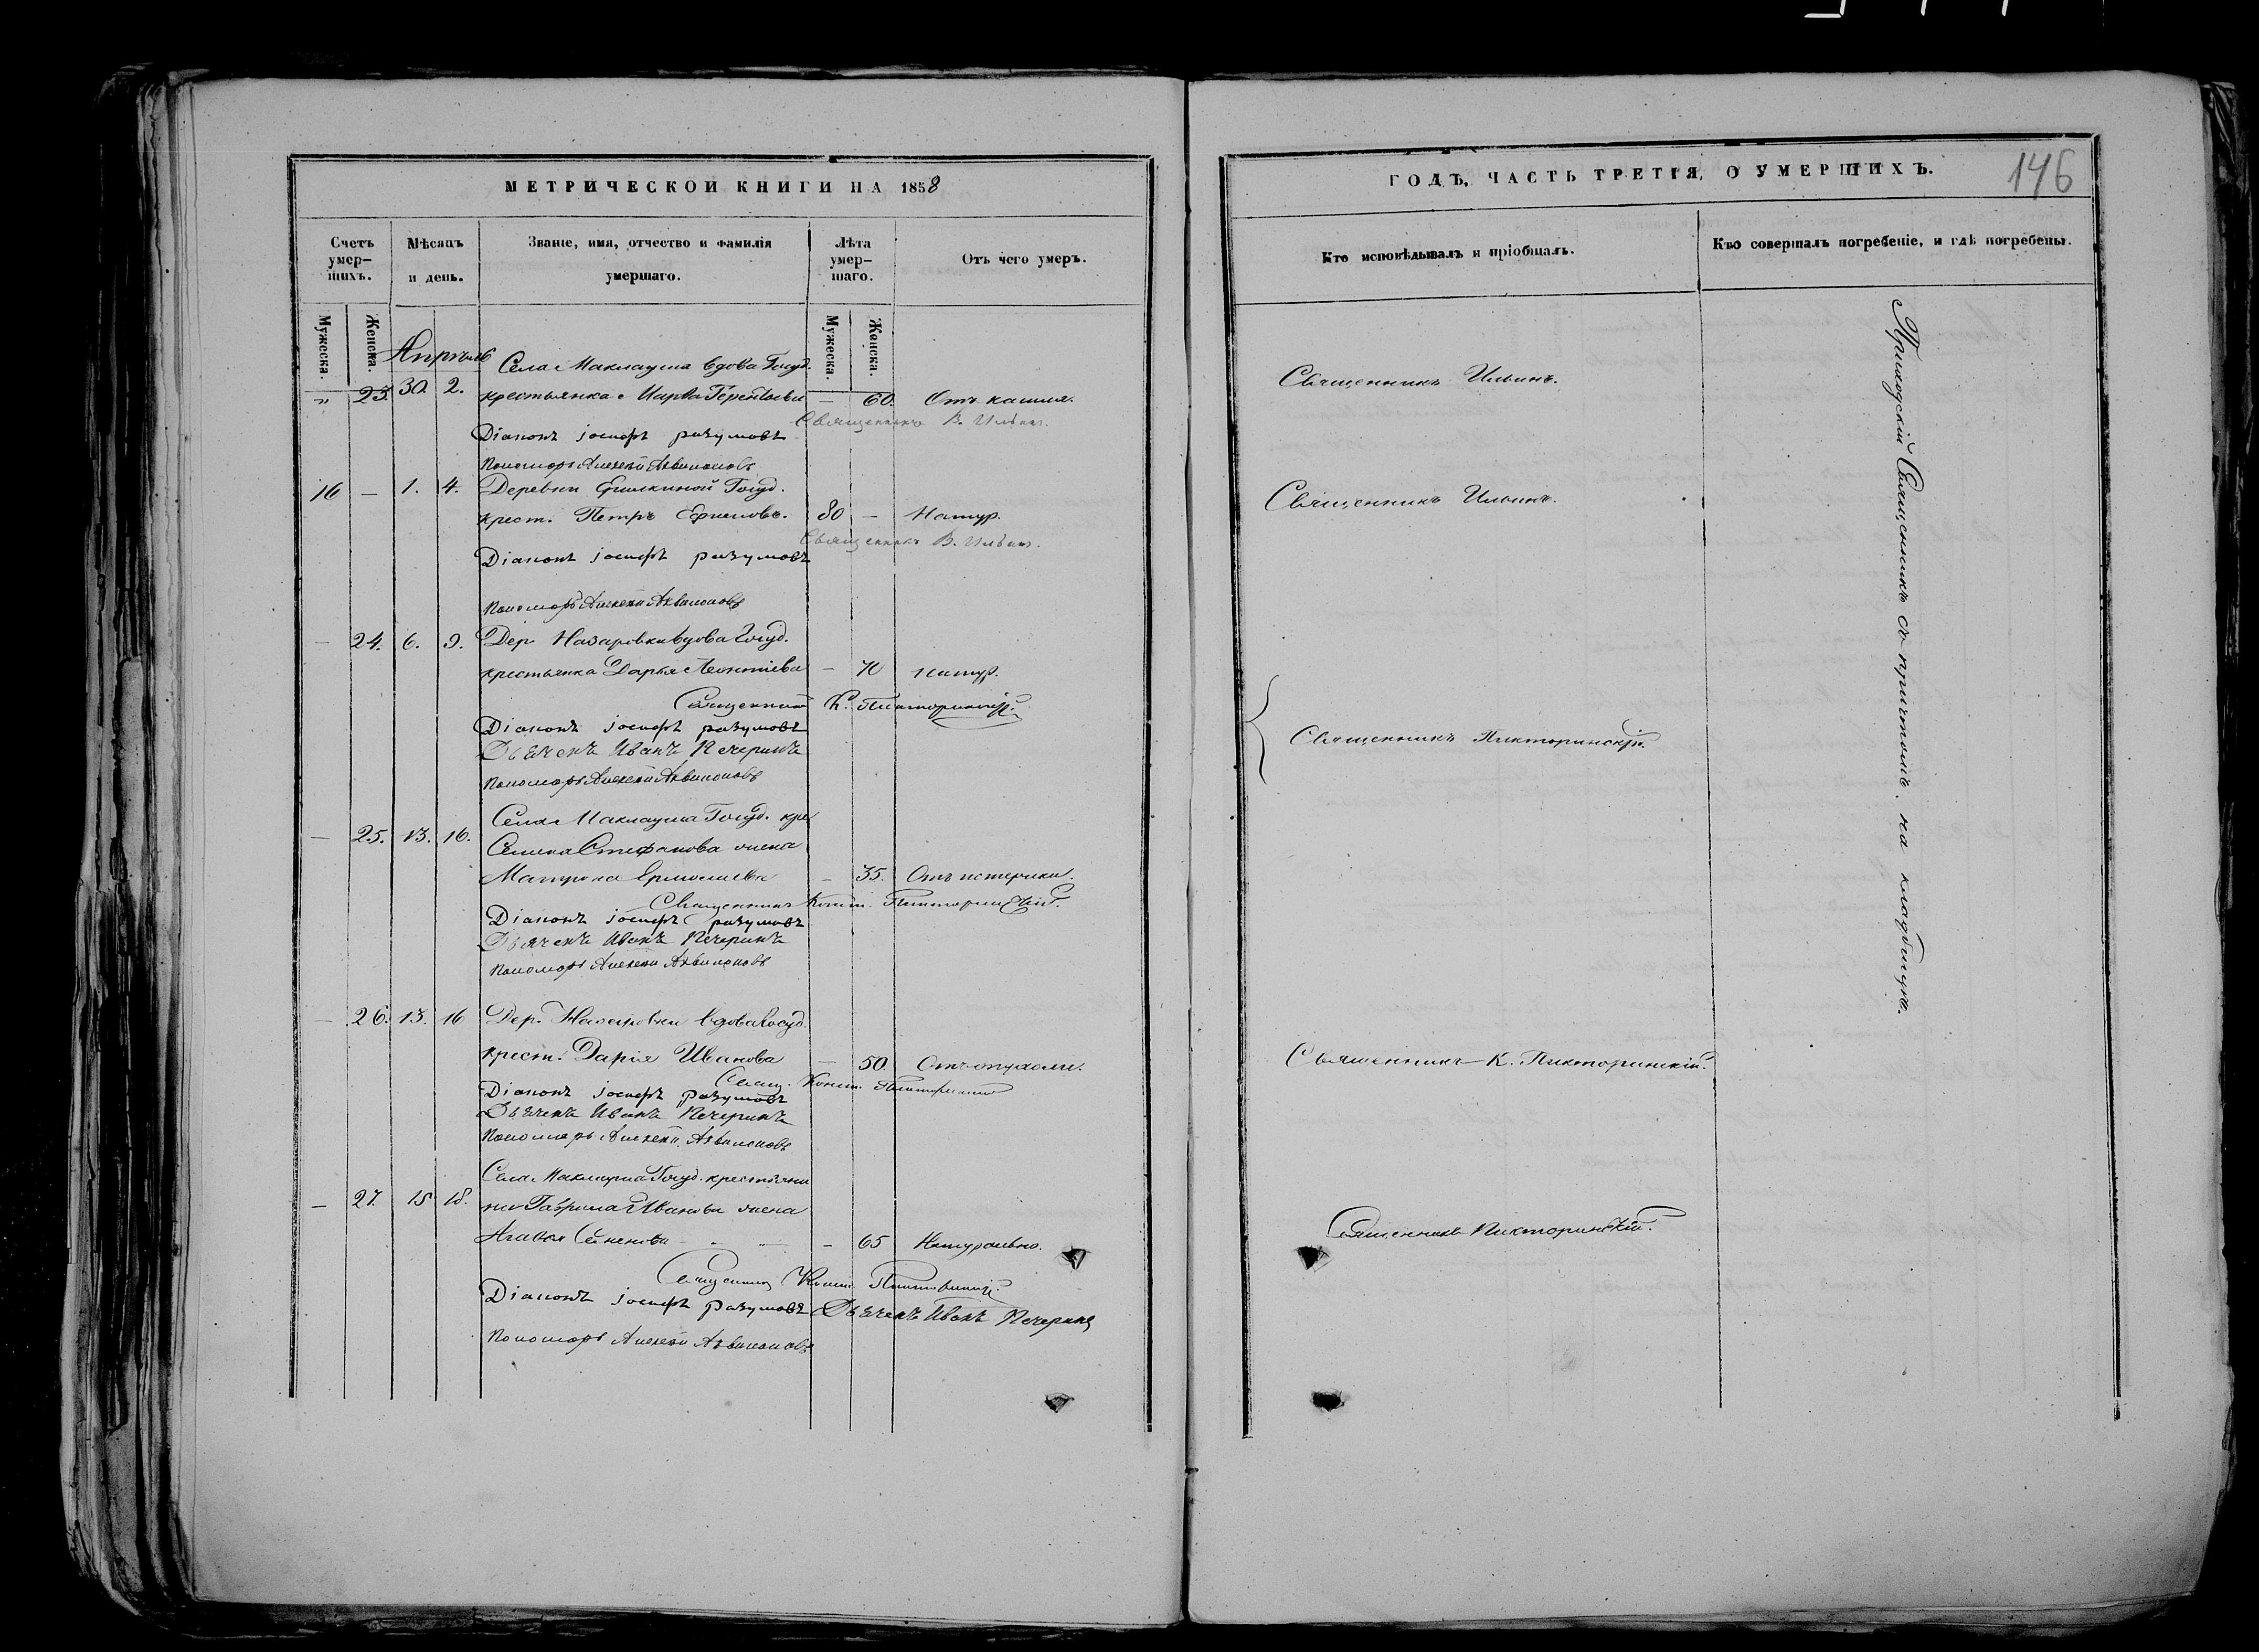 МЕТРИЧЕСКОЙ КНИГИ НА 1858
Счетъ умер-шихъ.
Мѣсяцъ и день.
Званіе, имя, отчество и фамилія умершаго.
Лѣта умер-шаго.
Отъ чего умеръ.
Мужеска. Женска.
Мужеска. Женска.
Апрѣль
Села Маклауша вдова Госуд.
" 23. 30. 2. крестьянка Марѳа Терентьева — 60. Отъ кашля.
Священникъ В. Ильинъ.
Діаконъ іосифъ разумовъ
Пономарь Алексѣй Аквилоновъ
16 — 1. 4. Деревни Ерилкиной Госуд.
крест. Петръ 80 — Натур.
Священникъ В. Ильинъ.
Діаконъ іосифъ разумовъ
Пономарь Алексѣй Аквилоновъ
— 24. 6. 9. Дер. Назаровки вдова Госуд.
крестьянка Дарья Леонтіева — 70 Натур.
Священникъ К. Пикторинскій.
Діаконъ іосифъ разумовъ
Дьячекъ Иванъ Печеринъ
Пономарь Алексѣй Аквилоновъ
Села Маклауша Госуд. кре
— 25. 13. 16. Стефанова жена
Матрона Ермолаева — 35. Отъ истерики.
Священникъ Конст. Пикторинскій.
Діаконъ іосифъ разумовъ
Дьячекъ Иванъ Печеринъ
Пономарь Алексѣй Аквилоновъ
— 26. 13. 16 Дер. Назаровки вдова Госуд.
крест. Дарія Иванова — 50. Отъ опухоли.
Свящ. Конст. Пикторинскій
Діаконъ іосифъ разумовъ
Дьячекъ Иванъ Печеринъ
Пономарь Алексѣй Аквилоновъ
Села Маклауша Госуд. крестьяни
— 27. 15 18. на Гаврила Иванова жена
Семенова — 65 Натурально.
Священникъ Конст. Пикторинскій.
Діаконъ іосифъ разумовъ Дьячекъ Иванъ Печеринъ
Пономарь Алексѣй Аквилоновъ
ГОДЪ, ЧАСТЬ ТРЕТІЯ, О УМЕРШИХЪ.
146
Кто исповѣдывалъ и пріобщалъ.
Кто совершалъ погребеніе, и гдѣ погребены.
Священникъ Ильинъ.
Священникъ Ильинъ.
Священникъ Пикторинскій.
Священникъ К. Пикторинскій.
Священникъ Пикторинскій.
Приходскій Священникъ съ причтомъ. на кладбищѣ.